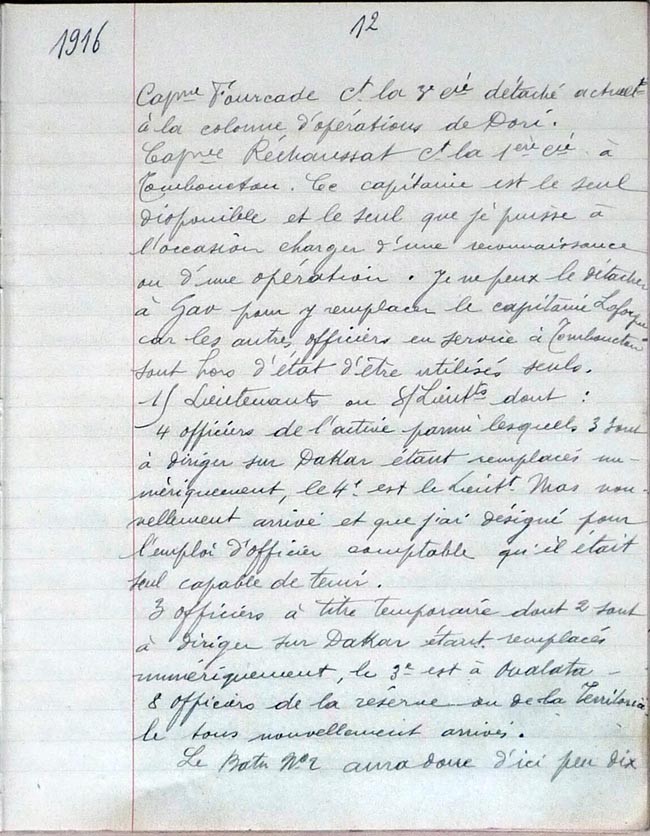 1916
12
Capne Fourcade Ct la 3e cie détaché actuelt
à la colonne d'opérations de Dori.
Capne Réchaussat Ct la 1ère cie à
Tombouctou. Ce capitaine est le seul
disponible et le seul que je puisse à
l'occasion charger d'une reconnaissance
ou d'une opération. Je ne peux le détacher
à Gao pour y remplacer le capitaine Laforgue
car les autres officiers en service à Tombouctou
sont hors d'état d'être utilisés seuls.
15 Lieutenants ou S/Lieutts dont :
4 officiers de l'active parmi lesquels 3 sont
à diriger sur Dakar étant remplacés nu-
mériquement, le 4e est le Lieutt Mas nou-
vellement arrivé et que j'ai désigné pour
l'emploi d'officier comptable qu'il était
seul capable de tenir.
3 officiers à titre temporaire dont 2 sont
à diriger sur Dakar étant remplacés
numériquement, le 3e est à Oualata -
8 officiers de la réserve ou de la Territoria-
le tous nouvellement arrivés.
Le Baton No 2 aura donc d'ici peu dix